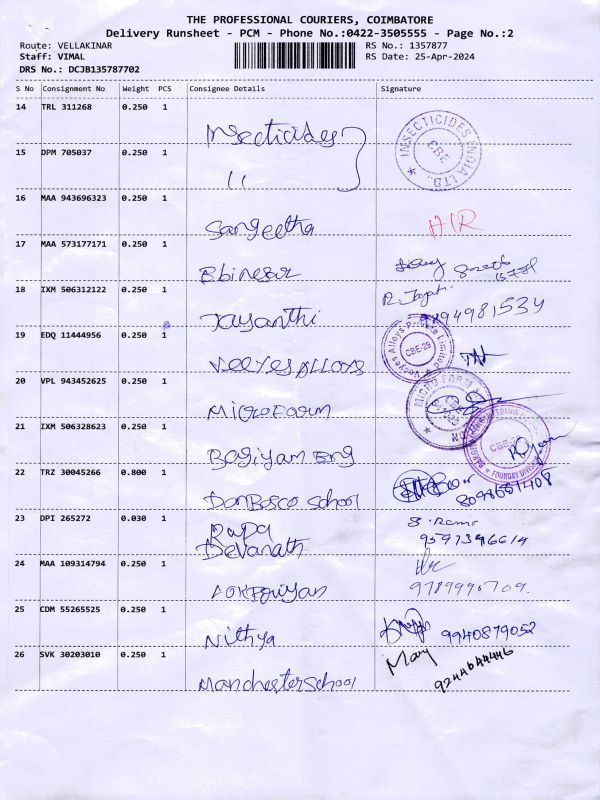 THE PROFESSIONAL COURIERS, COIMBATORE
Delivery Runsheet - PCM - Phone No.:0422-3505555 - Page No.:2
Route: VELLAKINAR
RS No.: 1357877
Staff: VIMAL
RS Date: 25-Apr-2024
DRS No.: DCJB135787702
S No Consignment No Weight PCS Consignee Details Signature
14 TRL 311268 0.250 1
Insecticides
INSECTICIDES INDIA LTD. CBE
15 DPM 705037 0.250 1
11
16 MAA 943696323 0.250 1
Sangeetha
17 MAA 573177171 0.250 1
18 IXM 506312122 0.250 1
Jayanthi
9894981534
19 EDQ 11444956 0.250 1
Veeyes Alloys
Veeyes Alloys Private Limited CBE-29
20 VPL 943452625 0.250 1
Microform
MICRO FORM
21 IXM 506328623 0.250 1
Bagiyam Eng
FOUNDRY DIVISION
22 TRZ 30045266 0.800 1
DonBosco School
23 DPI 265272 0.030 1
Papa
Devanath
24 MAA 109314794 0.250 1
25 CDM 55265525 0.250 1
Nithya
9940879052
26 SVK 30203010 0.250 1
Manchester School
Mary